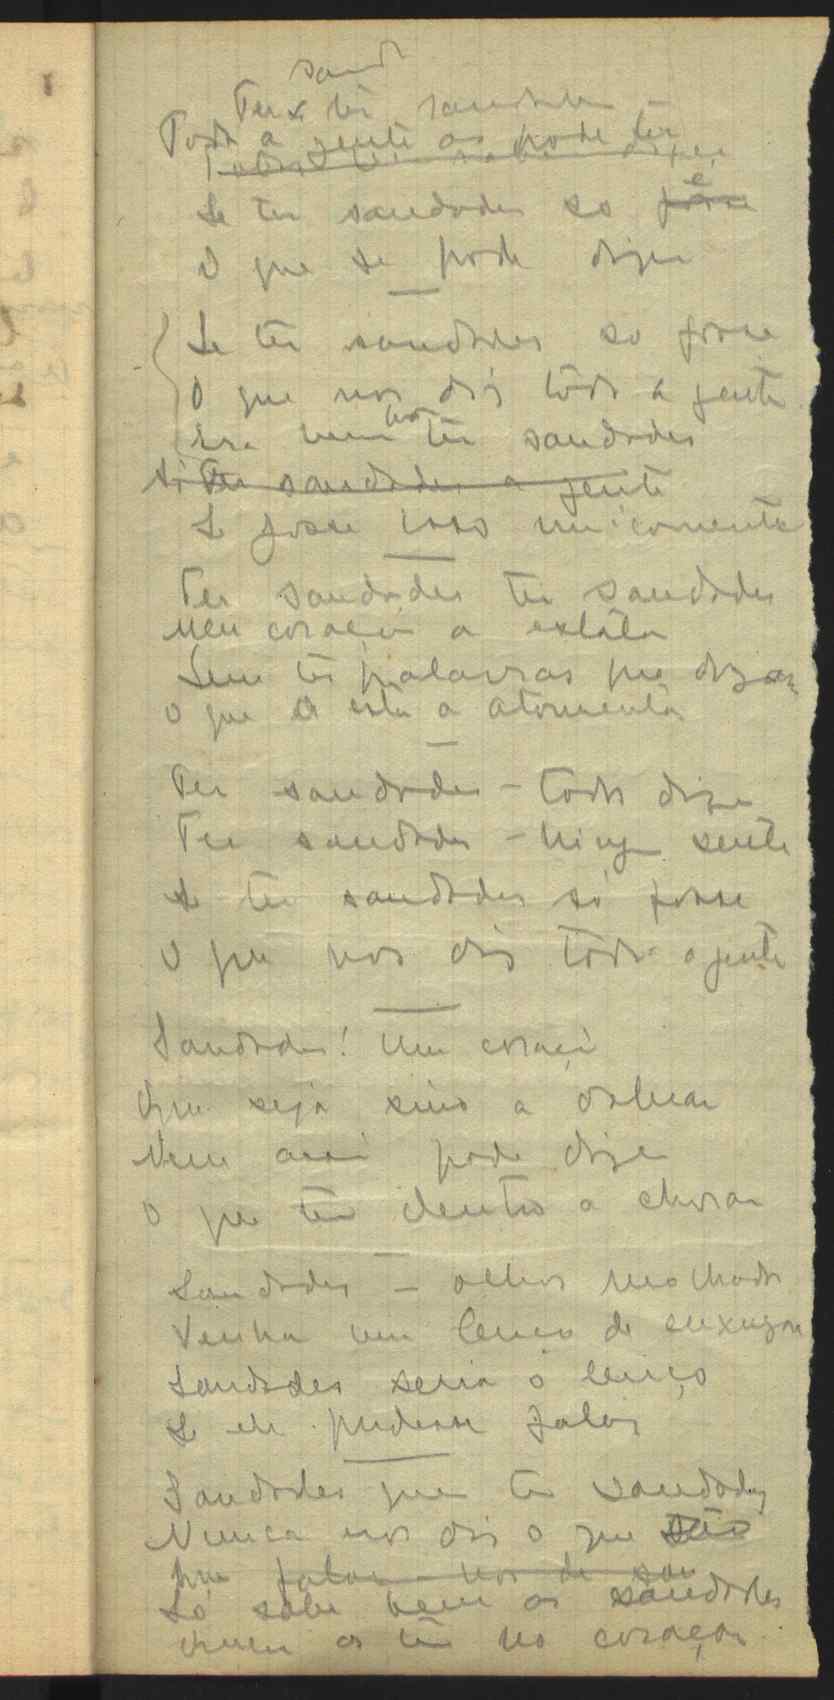 saud
Ter x ter saudades –
Toda a gente as pode ter
Se ter saudades so é
O que se pode dizer
Se ter saudades so fosse
O que nos diz tôda a gente
Era bom ter saudades
Si Ter saudades a gente
Se fosse isso unicamente
Ter saudades ter saudades
Meu coração a estála
Sem ter palavras que dizer
O que está a atormenta
Ter saudades – todos dizem
Ter saudades – ning sente
Se ter saudades só fosse
O que nos diz tôda a gente
Saudades! Um coração
Que seja sino a dobrar
Nem assi pode dizer
O que tem dentro a chorar
Saudades – olhos molhados
Venha um lenço de enxugar
Saudades seria o lenço
Se ele pudesse falar
Saudades quem tem saudades
Nunca nos diz o que são
que falar-nos de sau
Só sabe bem as saudades
Quem as tem no coração